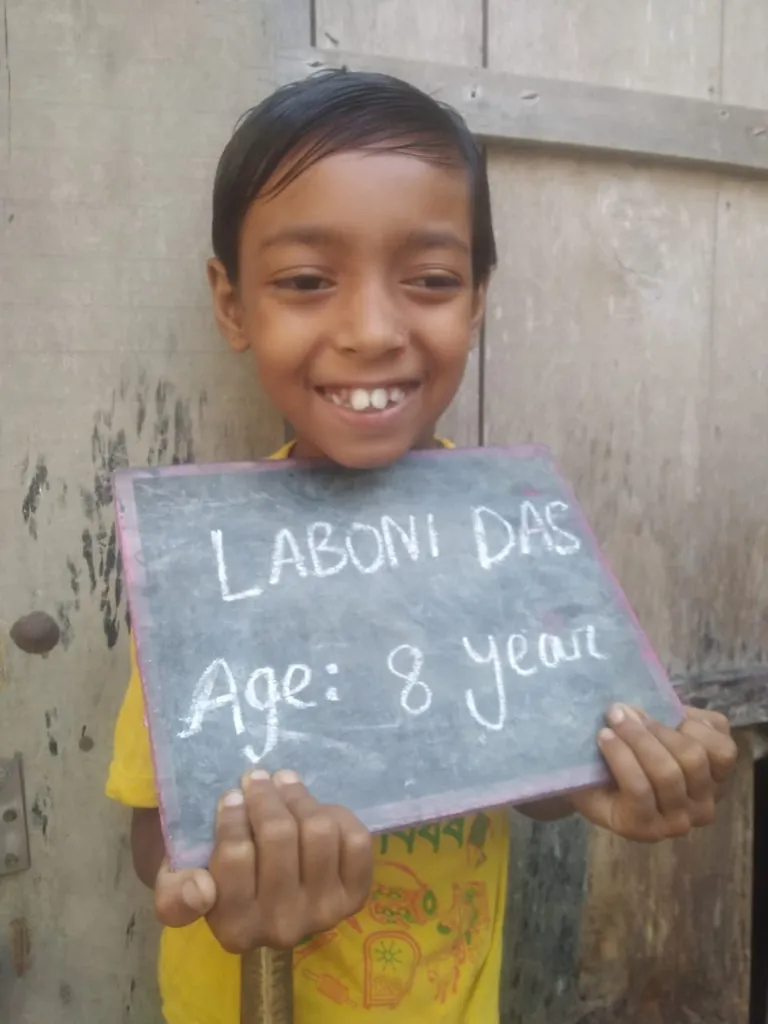 LABONI DAS
Age: 8 year